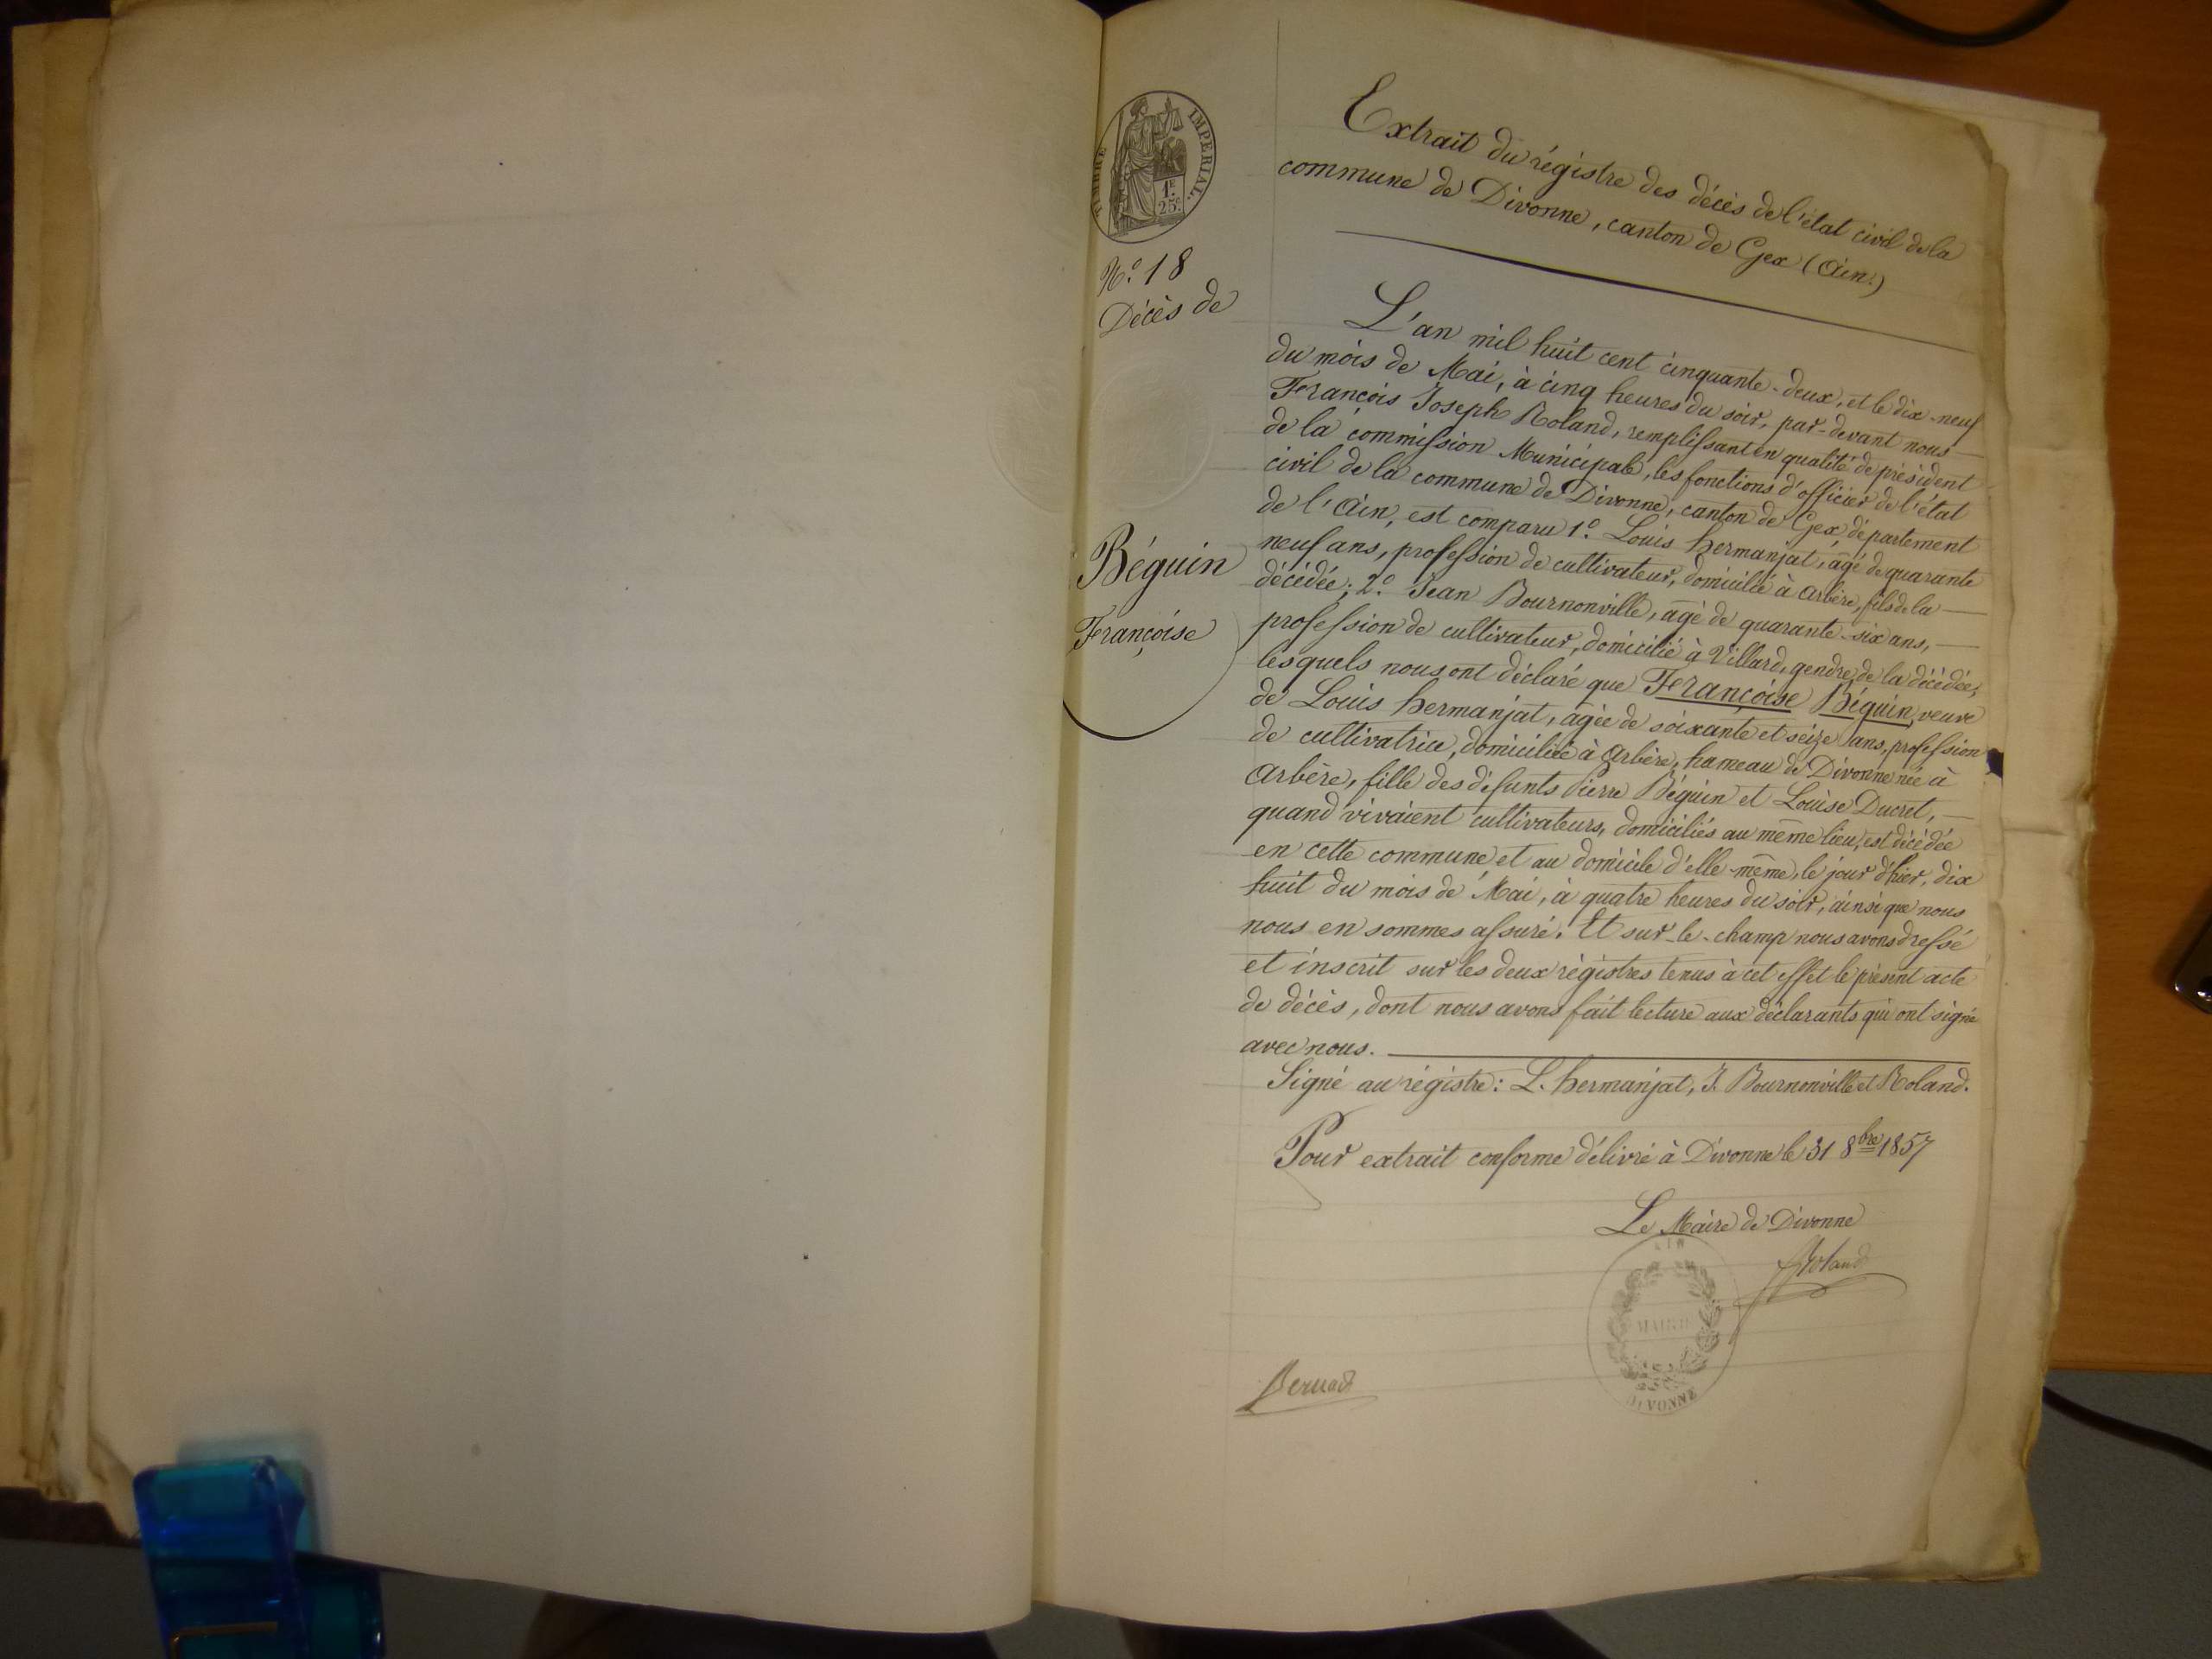 TIMBRE IMPERIAL.
1F.
25c.
No. 18
Décès de
Béguin
Françoise
Extrait du régistre des décès de l'état civil de la
commune de Divonne, canton de Gex (Ain.)
L'an mil huit cent cinquante-deux, et le dix-neuf
du mois de Mai, à cinq heures du soir, par-devant nous
François Joseph Roland, remplissant en qualité de président
de la commission Municipale, les fonctions d'officier de l'état
civil de la commune de Divonne, canton de Gex, département
de l'Ain, est comparu 1o. Louis hermanjat, âgé de quarante
neuf ans, profession de cultivateur, domicilié à Arbère, fils de la
décédée; 2o. Jean Bournonville, âgé de quarante-six ans,
profession de cultivateur, domicilié à Villard, gendre de la décédée,
lesquels nous ont déclaré que Françoise Béguin, veuve
de Louis hermanjat, âgée de soixante et seize ans, profession
de cultivatrice, domiciliée à Arbère, hameau de Divonne née à
Arbère, fille des défunts Pierre Béguin et Louise Ducret,
quand vivaient cultivateurs, domiciliés au même lieu, est décédée
en cette commune, et au domicile d'elle-même, le jour d'hier, dix
huit du mois de Mai, à quatre heures du soir, ainsi que nous
nous en sommes assuré. Et sur-le-champ nous avons dressé
et inscrit sur les deux régistres tenus à cet effet le présent acte
de décès, dont nous avons fait lecture aux déclarants qui ont signé
avec nous.
Signé au régistre: L. hermanjat, J. Bournonville et Roland.
Pour extrait conforme délivré à Divonne le 31 8bre 1857
Le Maire de Divonne
Roland
AIN
MAIRIE
DIVONNE